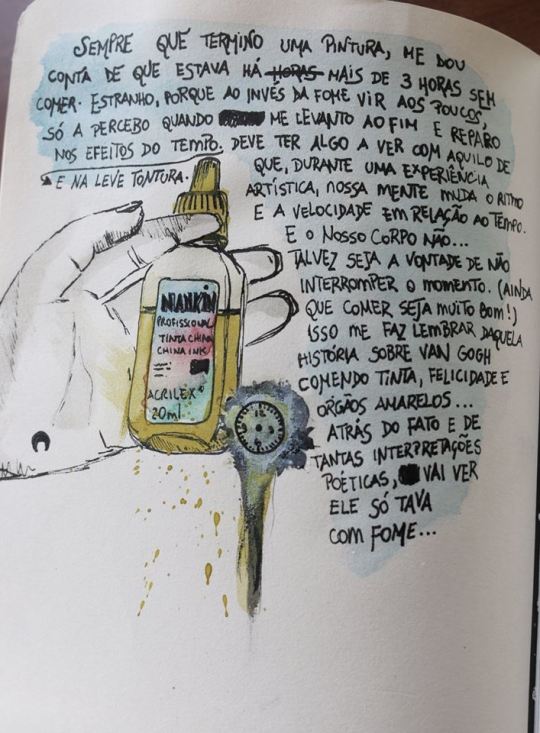 SEMPRE QUE TERMINO UMA PINTURA, ME DOU
CONTA DE QUE ESTAVA HÁ HORAS MAIS DE 3 HORAS SEM
COMER. ESTRANHO, PORQUE AO INVÉS DA FOME VIR AOS POUCOS,
SÓ A PERCEBO QUANDO ME LEVANTO AO FIM E REPARO
NOS EFEITOS DO TEMPO. DEVE TER ALGO A VER COM AQUILO DE
E NA LEVE TONTURA.
QUE, DURANTE UMA EXPERIÊNCIA
ARTÍSTICA, NOSSA MENTE MUDA O RITMO
E A VELOCIDADE EM RELAÇÃO AO TEMPO.
E O NOSSO CORPO NÃO...
TALVEZ SEJA A VONTADE DE NÃO
INTERROMPER O MOMENTO. (AINDA
QUE COMER SEJA MUITO BOM!)
ISSO ME FAZ LEMBRAR DAQUELA
HISTÓRIA SOBRE VAN GOGH
COMENDO TINTA, FELICIDADE E
ORGÃOS AMARELOS...
ATRÁS DO FATO E DE
TANTAS INTERPRETAÇÕES
POÉTICAS, VAI VER
ELE SÓ TAVA
COM FOME...
NANKIN
PROFISSIONAL
TINTA CHINA
CHINA INK
ACRILEX
20ml